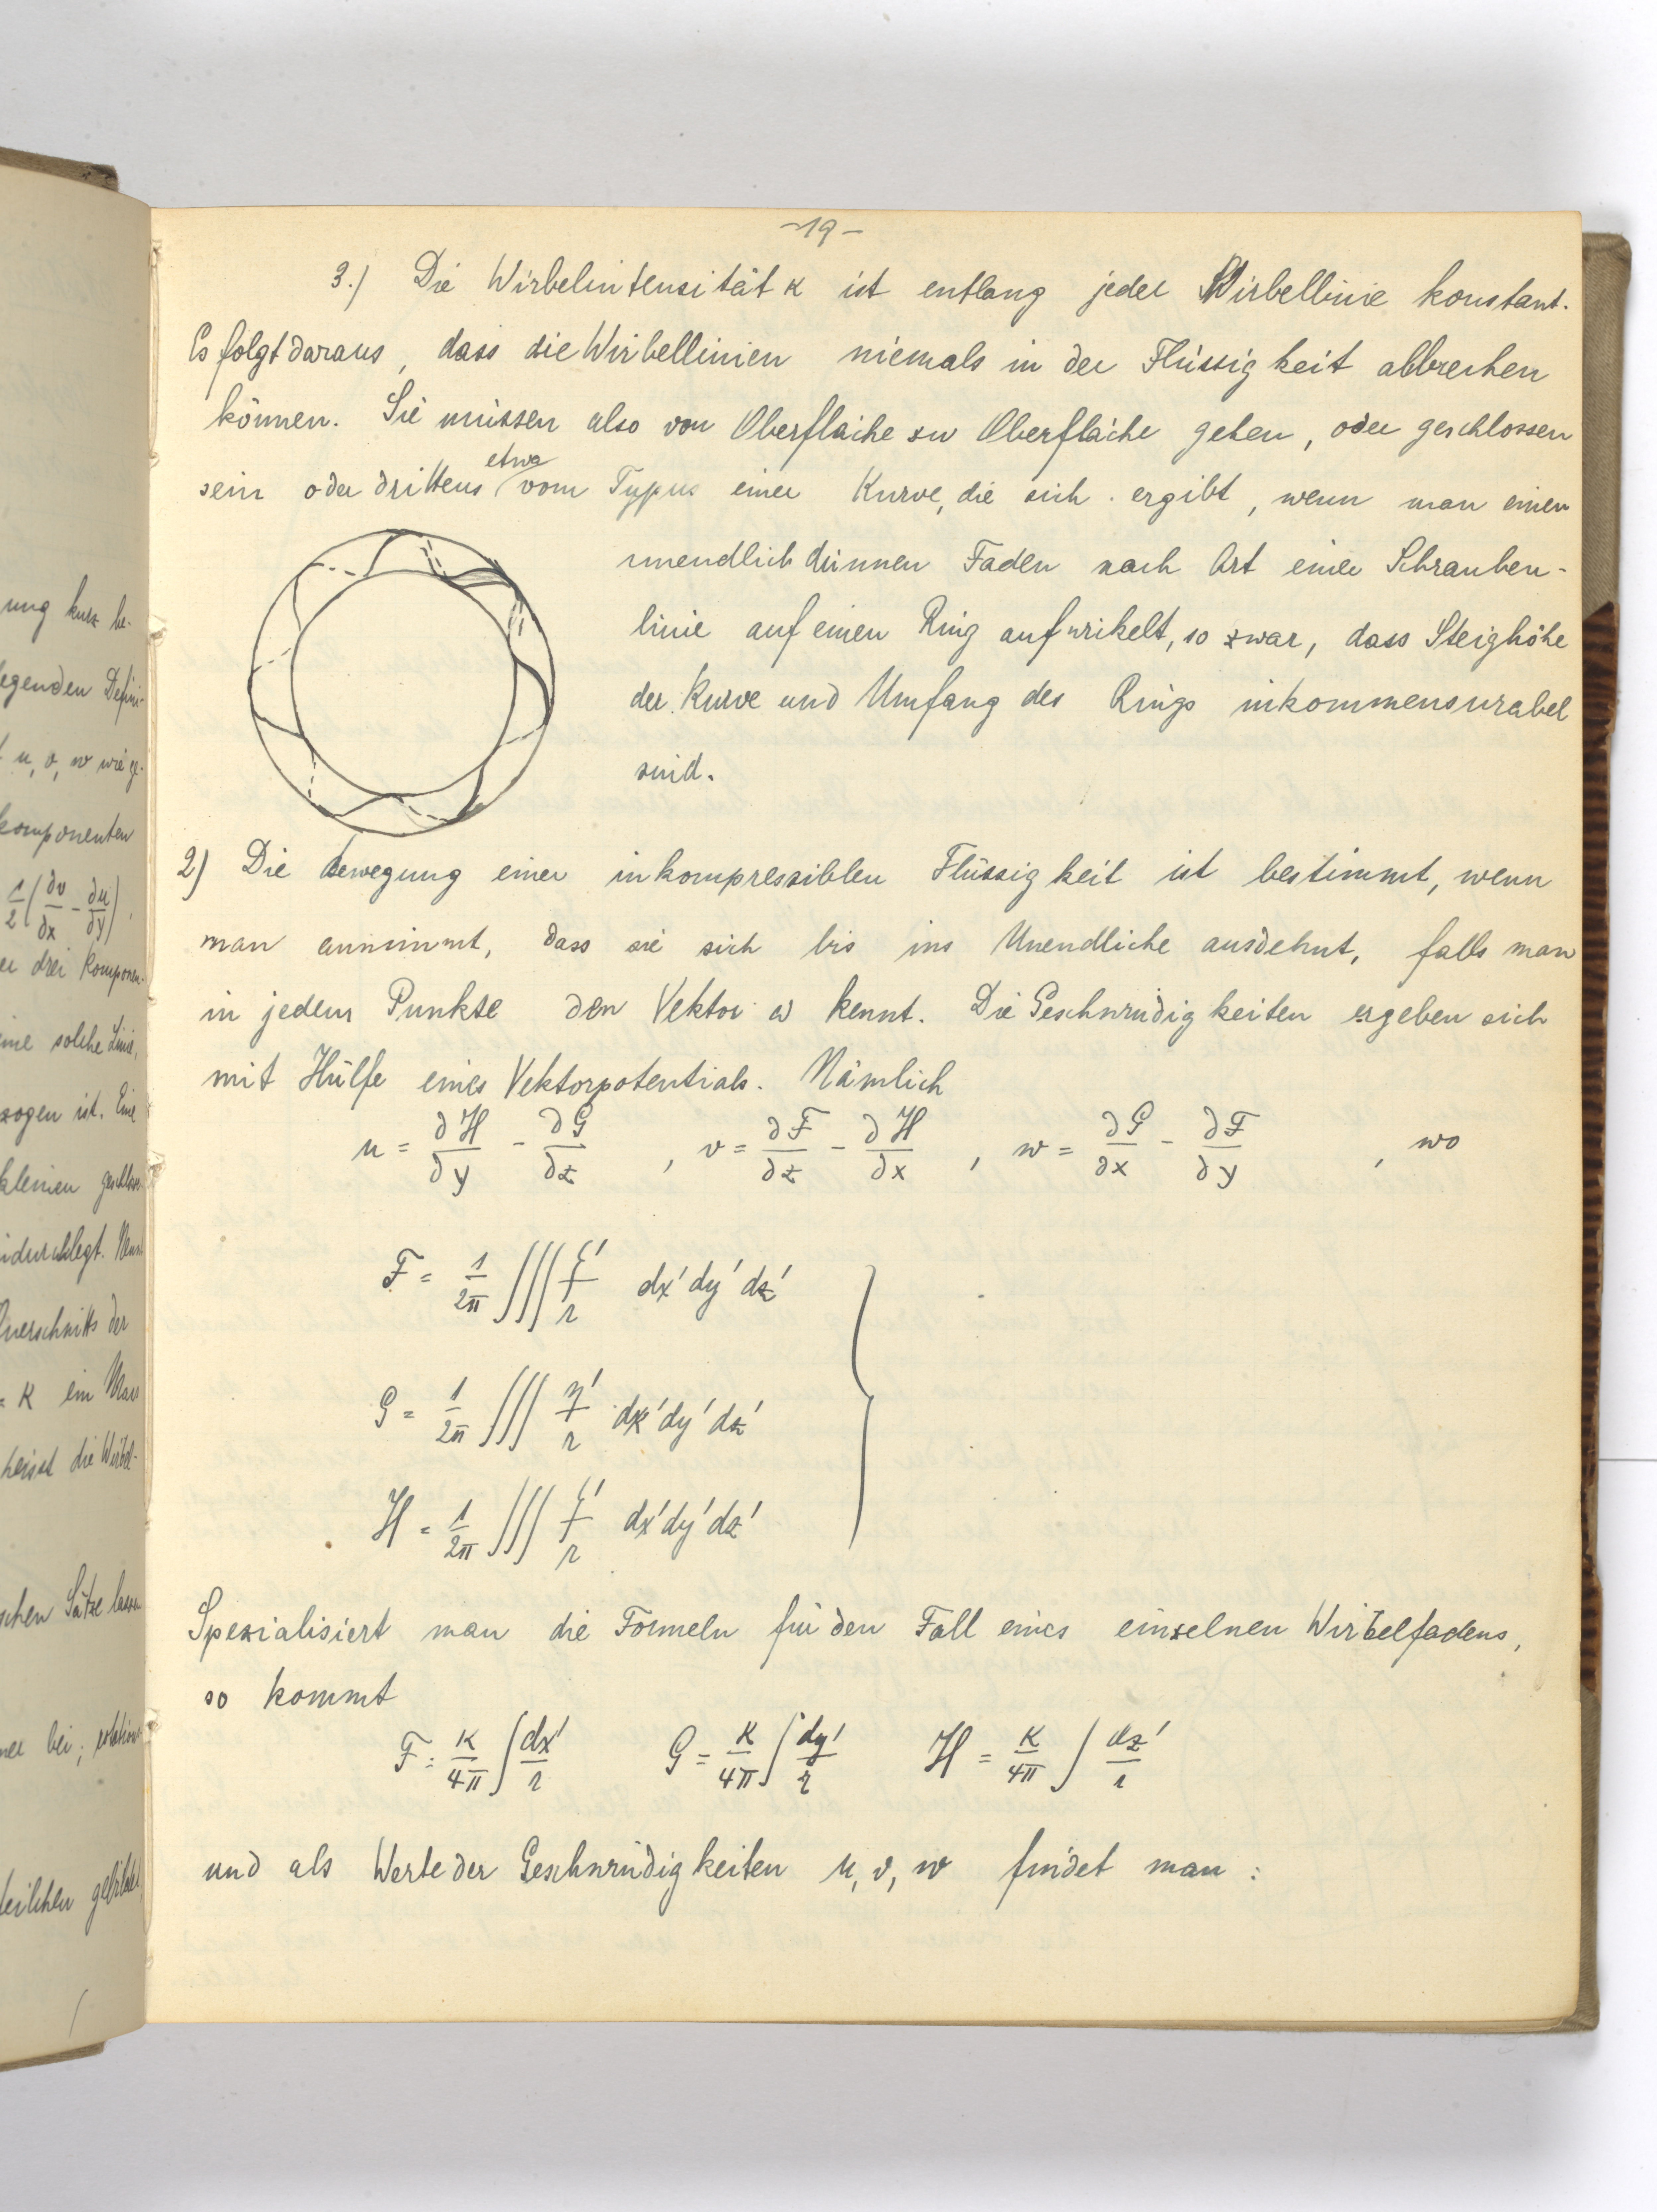 ung kurz be-
egenden Defini-
u, v, w wie ge-
komponenten
1/2 (∂v/∂x - ∂u/∂y),
drei Komponen-
eine solche Linie,
zogen ist. Eine
kleinen geschloss
Querschnitts der
= K ein Mass
heisst die Wirbel-
schen Sätze lassen
bei; rotation
teilchen gebildet
-19-
3.) Die Wirbelintensität κ ist entlang jeder Wirbellinie konstant.
Es folgt daraus, dass die Wirbellinien niemals in der Flüssigkeit abbrechen
können. Sie müssen also von Oberfläche zu Oberfläche gehen, oder geschlossen
sein oder drittens etwa vom Typus einer Kurve, die sich ergibt, wenn man einen
unendlich dünnen Faden nach Art einer Schrauben-
linie auf einen Ring aufwikelt, so zwar, dass Steighöhe
der Kurve und Umfang des Rings inkommensurabel
sind.
2) Die Bewegung einer inkompressiblen Flüssigkeit ist bestimmt, wenn
man annimmt, dass sie sich bis ins Unendliche ausdehnt, falls man
in jedem Punkte den Vektor ω kennt. Die Geschwindigkeiten ergeben sich
mit Hülfe eines Vektorpotentials. Nämlich
u = ∂H/∂y - ∂G/∂z , v = ∂F/∂z - ∂H/∂x , w = ∂G/∂x - ∂F/∂y , wo
F = 1/2π ∭ ξ'/r dx' dy' dz'
G = 1/2π ∭ η'/r dx' dy' dz'
H = 1/2π ∭ ζ'/r dx' dy' dz'
Spezialisiert man die Formeln für den Fall eines einzelnen Wirbelfadens,
so kommt
F = κ/4π ∫ dx'/r G = κ/4π ∫ dy'/r H = κ/4π ∫ dz'/r
und als Werte der Geschwindigkeiten u, v, w findet man :